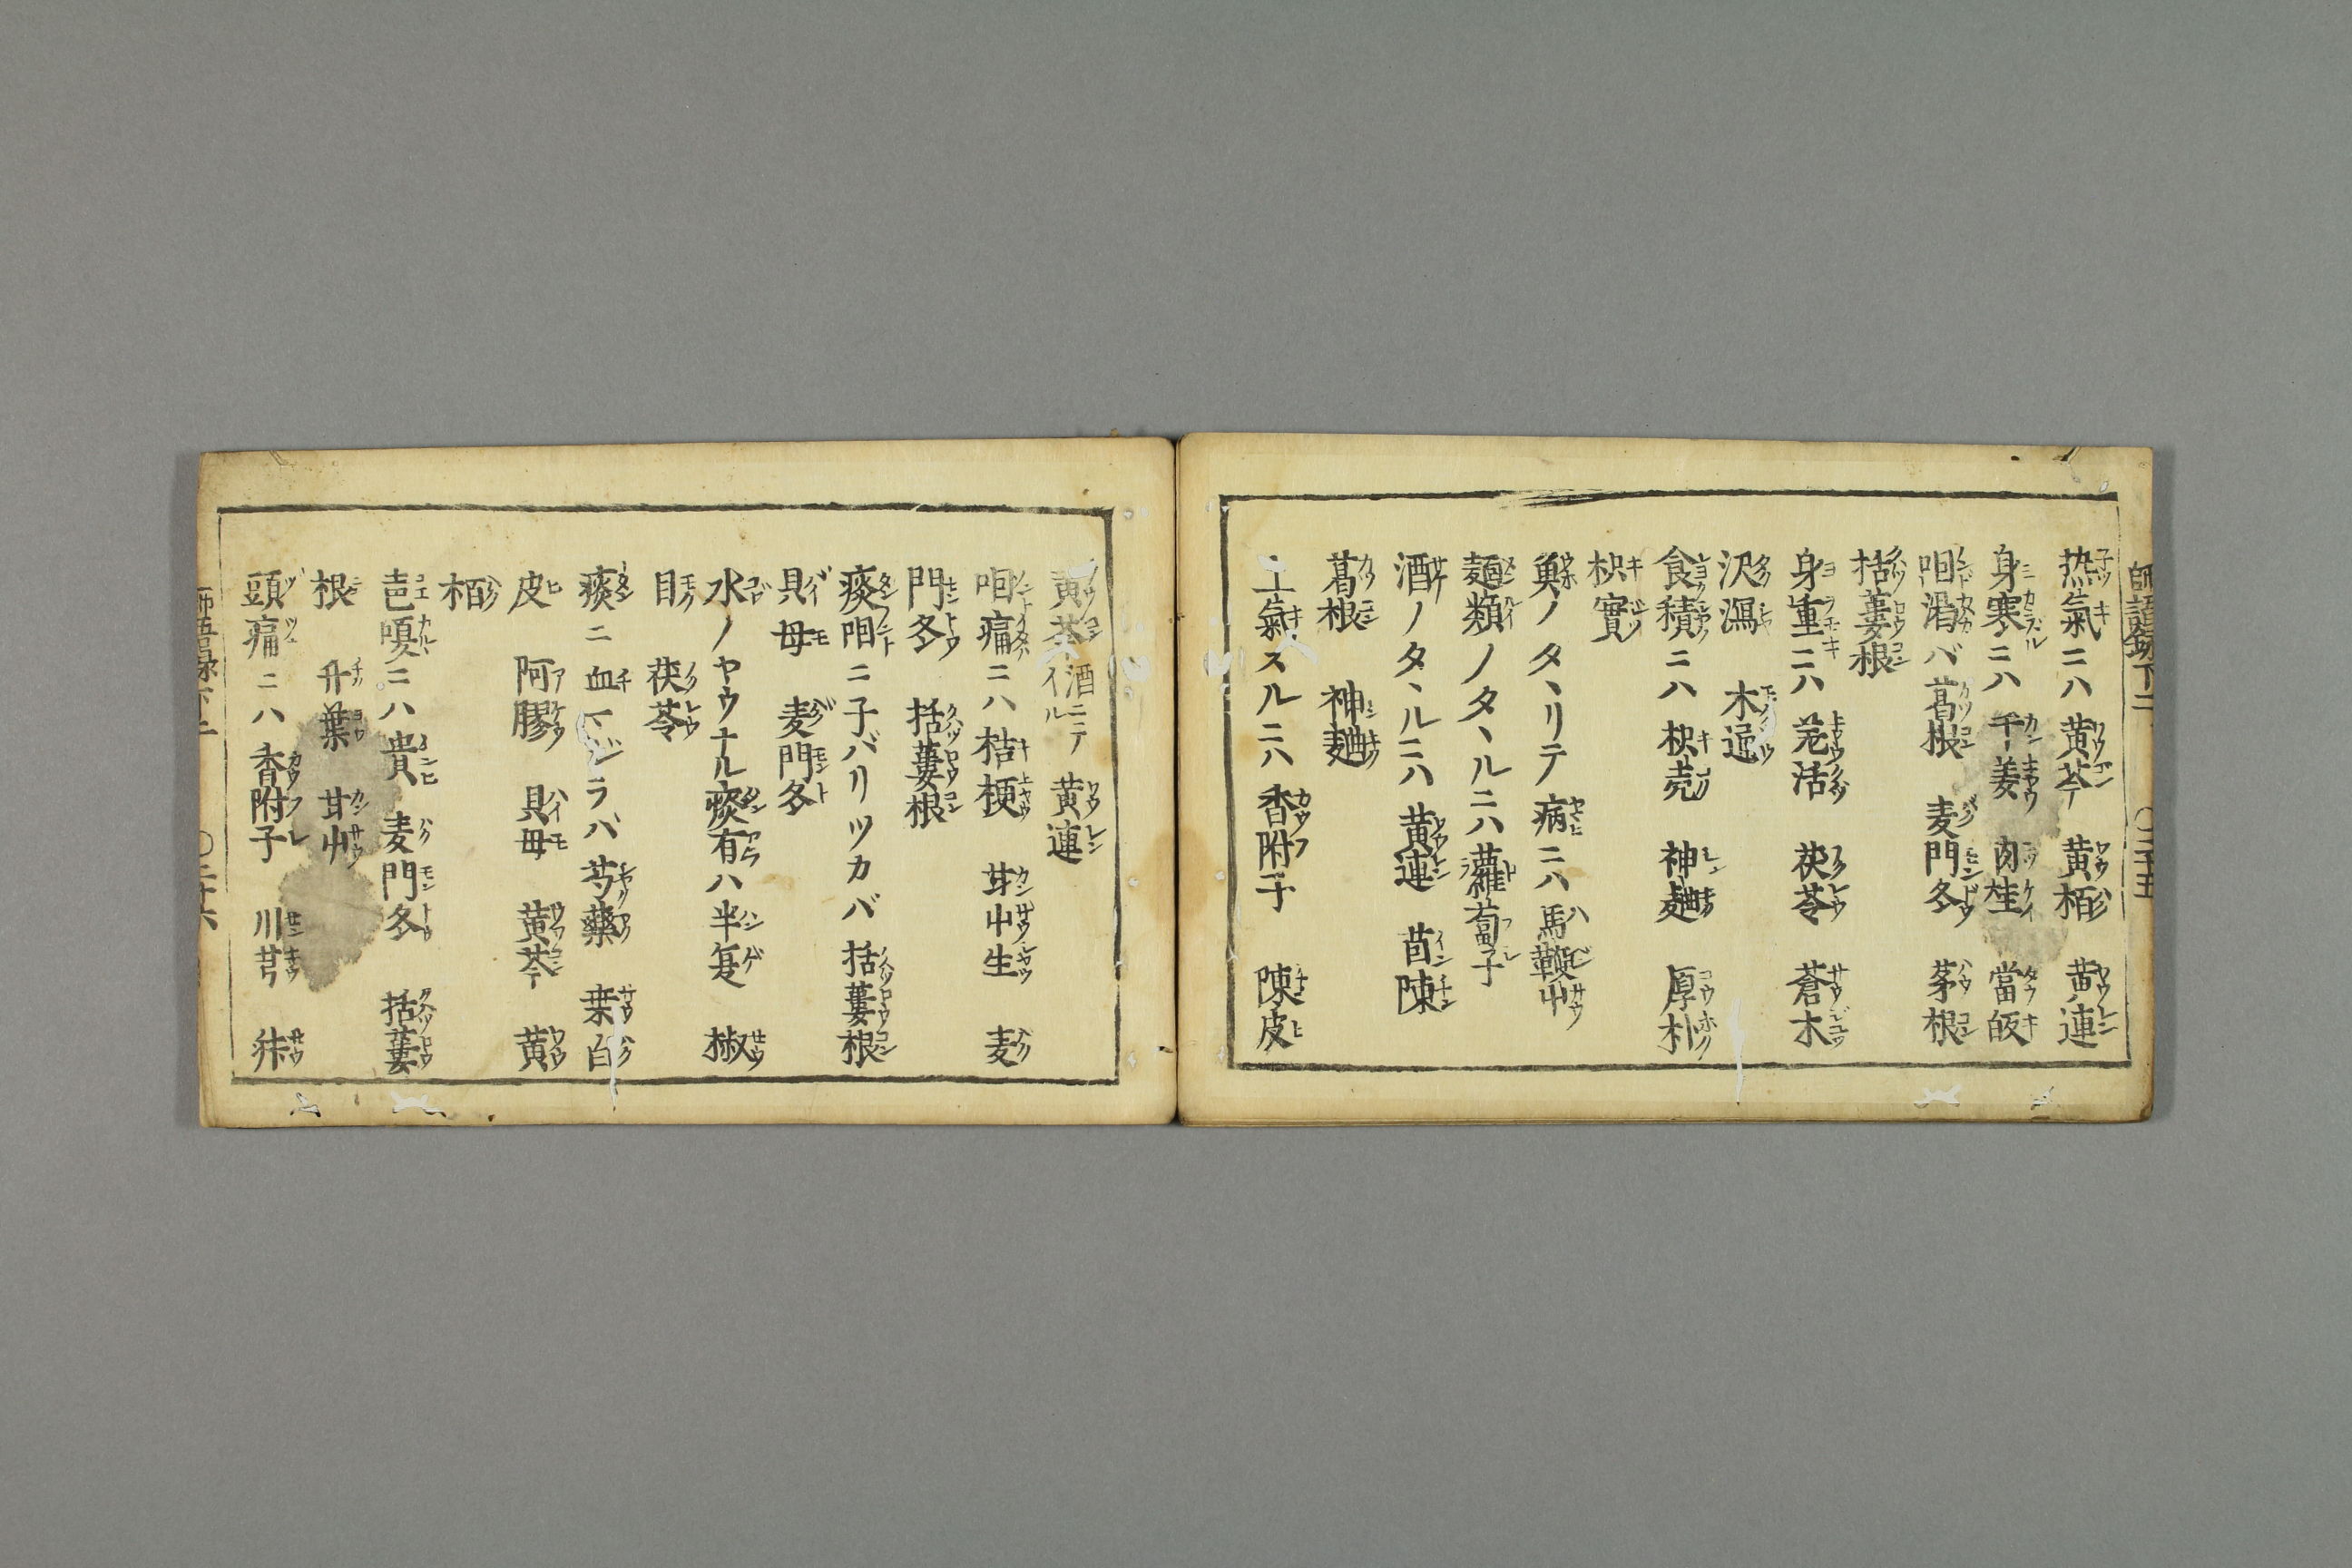 師語錄下二 〇二十五
热氣ニハ 黄芩 黄栢 黄連
身寒ニハ 干姜 肉桂 當皈
咽渇バ 葛根 麦門冬 茅根
括蔞根
身重ニハ 羌活 茯苓 蒼朮
沢瀉 木通
食積ニハ 枳壳 神麯 厚朴
枳實
魚ノタヽリテ病ニハ 馬鞭屮
麺類ノタヽルニハ 蘿蔔子
酒ノタヽルニハ 黄連 茵陳
葛根 神麯
上氣スルニハ 香附子 陳皮
黄芩酒ニテイル 黄連
咽痛ニハ 桔梗 甘屮生 麦
門冬 括蔞根
痰咽ニ子バリツカバ 括蔞根
貝母 麦門冬
水ノヤウナル痰有ハ 半夏 椒
目 茯苓
痰ニ血下ラバ 芍藥 桒白
皮 阿膠 貝母 黄芩 黄
栢
声嗄ニハ 麦門冬 括蔞
根 甘屮
頭痛ニハ 香附子 川芎
〇二十六